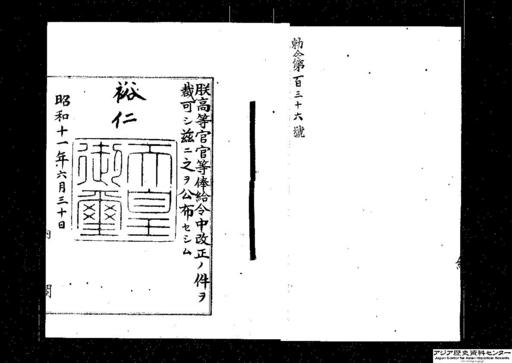 勅令第百三十六號
朕高等官官等俸給令中改正ノ件ヲ
裁可シ茲ニ之ヲ公布セシム
裕仁
天皇御璽
昭和十一年六月三十日
内閣
アジア歴史資料センター
Japan Center for Asian Historical Records